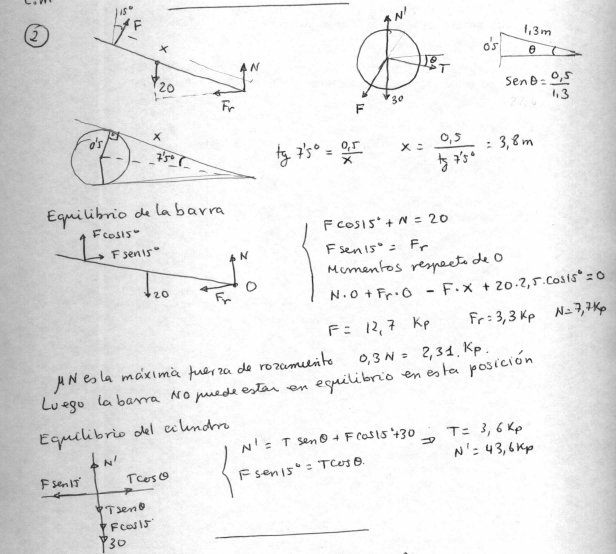 2
15°
F
x
20
N
Fr
N'
θ
T
F
30
1,3m
0'5
θ
sen θ = 0,5 / 1,3
0'5
x
7'5°
tg 7'5° = 0,5 / x
x = 0,5 / tg 7'5° = 3,8 m
Equilibrio de la barra
F cos15°
F sen15°
20
N
O
Fr
F cos15° + N = 20
F sen15° = Fr
Momentos respecto de O
N·O + Fr·O - F·x + 20·2,5·cos15° = 0
F = 12,7 Kp Fr = 3,3 Kp N = 7,7 Kp
μN es la máxima fuerza de rozamiento 0,3 N = 2,31 Kp.
Luego la barra NO puede estar en equilibrio en esta posición
Equilibrio del cilindro
N' = T sen θ + F cos15° + 30 ⇒ T = 3,6 Kp
F sen15° = T cos θ. N' = 43,6 Kp
N'
F sen15
T cos θ
T sen θ
F cos15
30